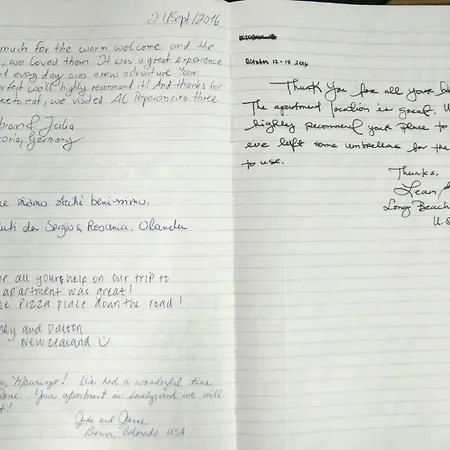 21/Sept/2016
much for the warm welcome and the
, we loved them. It was a great experience
nd every day was a new adventure. Your
perfect we'll highly recommend it! And thanks for
to eat, we visited Al Peperoncino three
brand Julia
Germany
e siamo stati benissimo.
uti da Sergio & Rosanna, Olanda
or all your help on our trip to
apartment was great!
e Pizza place down the road!
ney and Dalton
New Zealand
, Maurizio! We had a wonderful time
. Your apartment is lovely and we will
t!
Jude and
Denver, Colorado USA
October 12-18 2016
Thank You for all your
The apartment location is great.
highly recommend your place to
eve left some umbrellas for the
to use.
Thanks,
Jean
Long Beach
U.S